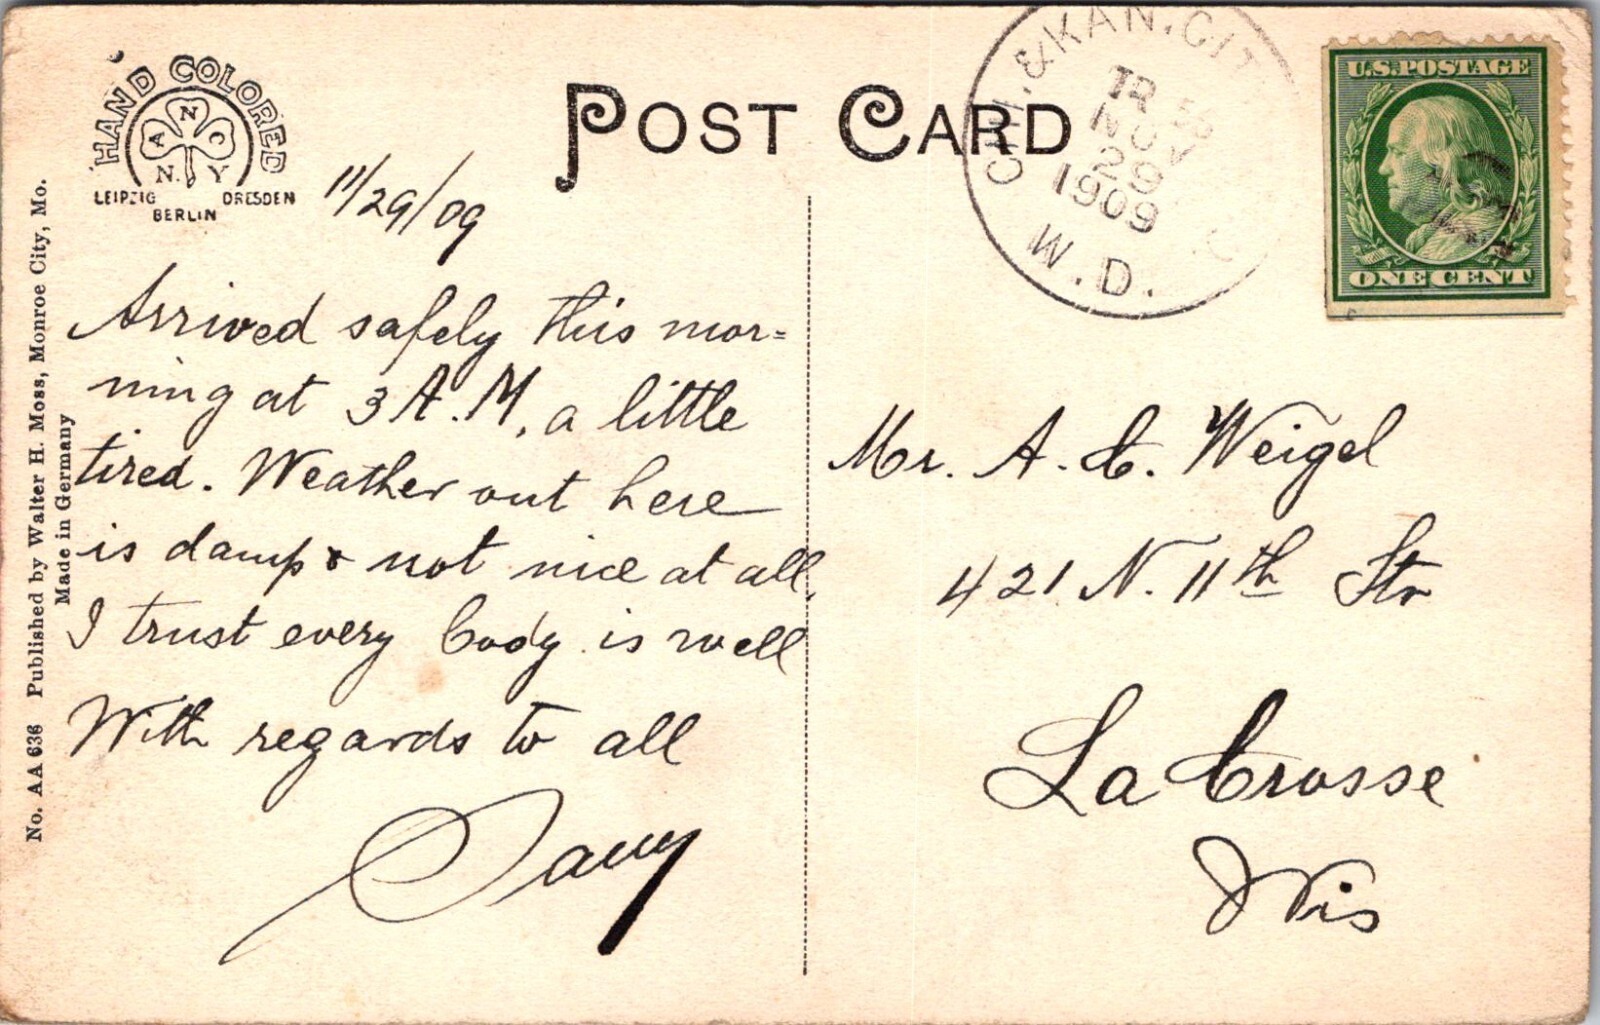 HAND COLORED
A N C
N. Y
LEIPZIG DRESDEN
BERLIN
POST CARD
CHI. & KAN. CIT
TR
NOV
29
1909
W.D.
U.S. POSTAGE
ONE CENT
11/29/09
Arrived safely this mor=
ning at 3 A.M, a little
tired. Weather out here
is damp & not nice at all.
I trust every body is well
With regards to all
Mr. A. C. Weigel
421 N. 11th Str
La Crosse
Wis
No. AA 636 Published by Walter H. Moss, Monroe City, Mo.
Made in Germany